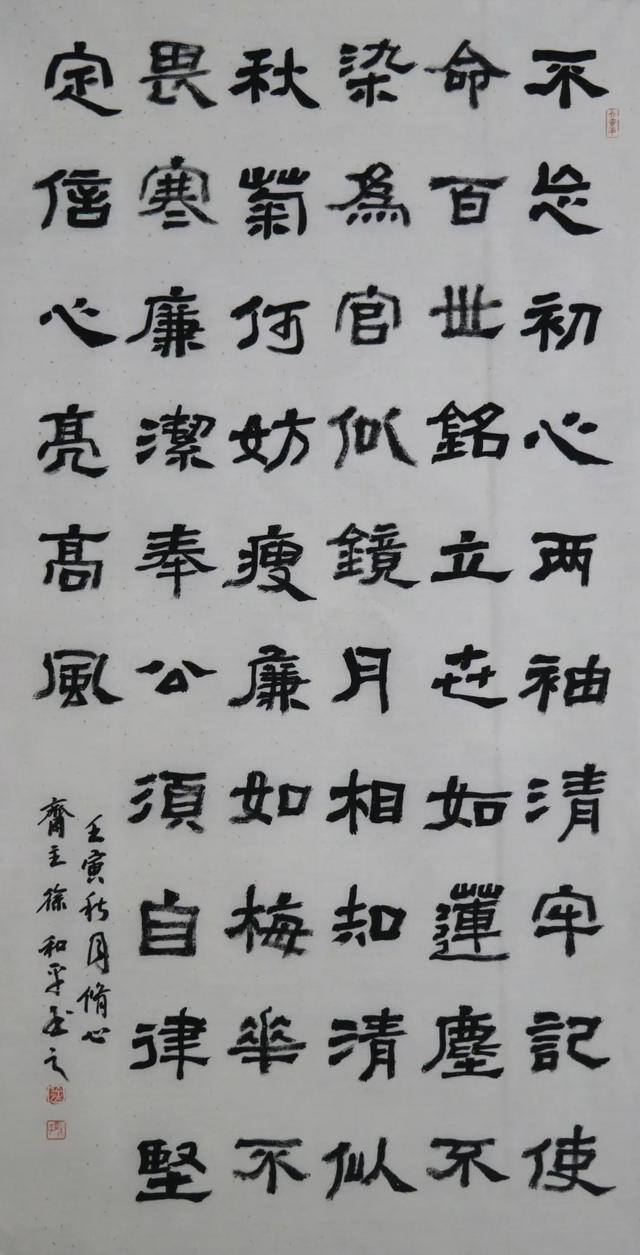 不忘初心两袖清牢記使
命百世銘立世如蓮塵不
染為官似鏡月相知清似
秋菊何妨瘦廉如梅華不
畏寒廉潔奉公須自律堅
定信心亮高風
壬寅秋月脩心
齋主徐和平書之